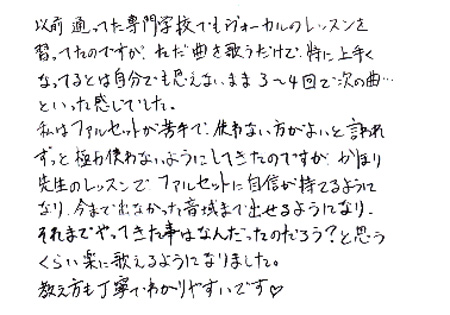 以前通ってた専門学校でもヴォーカルのレッスンを
習ってたのですが、ただ曲を歌うだけで、特に上手く
なってるとは自分でも思えないまま3〜4回で次の曲…
といった感じでした。
私はファルセットが苦手で、使わない方がよいと言われ
ずっと極力使わないようにしてきたのですが、かほり
先生のレッスンで、ファルセットに自信が持てるように
なり、今まで出なかった音域まで出せるようになり、
それまでやってきた事はなんだったのだろう?と思う
くらい楽に歌えるようになりました。
教え方も丁寧でわかりやすいです♡